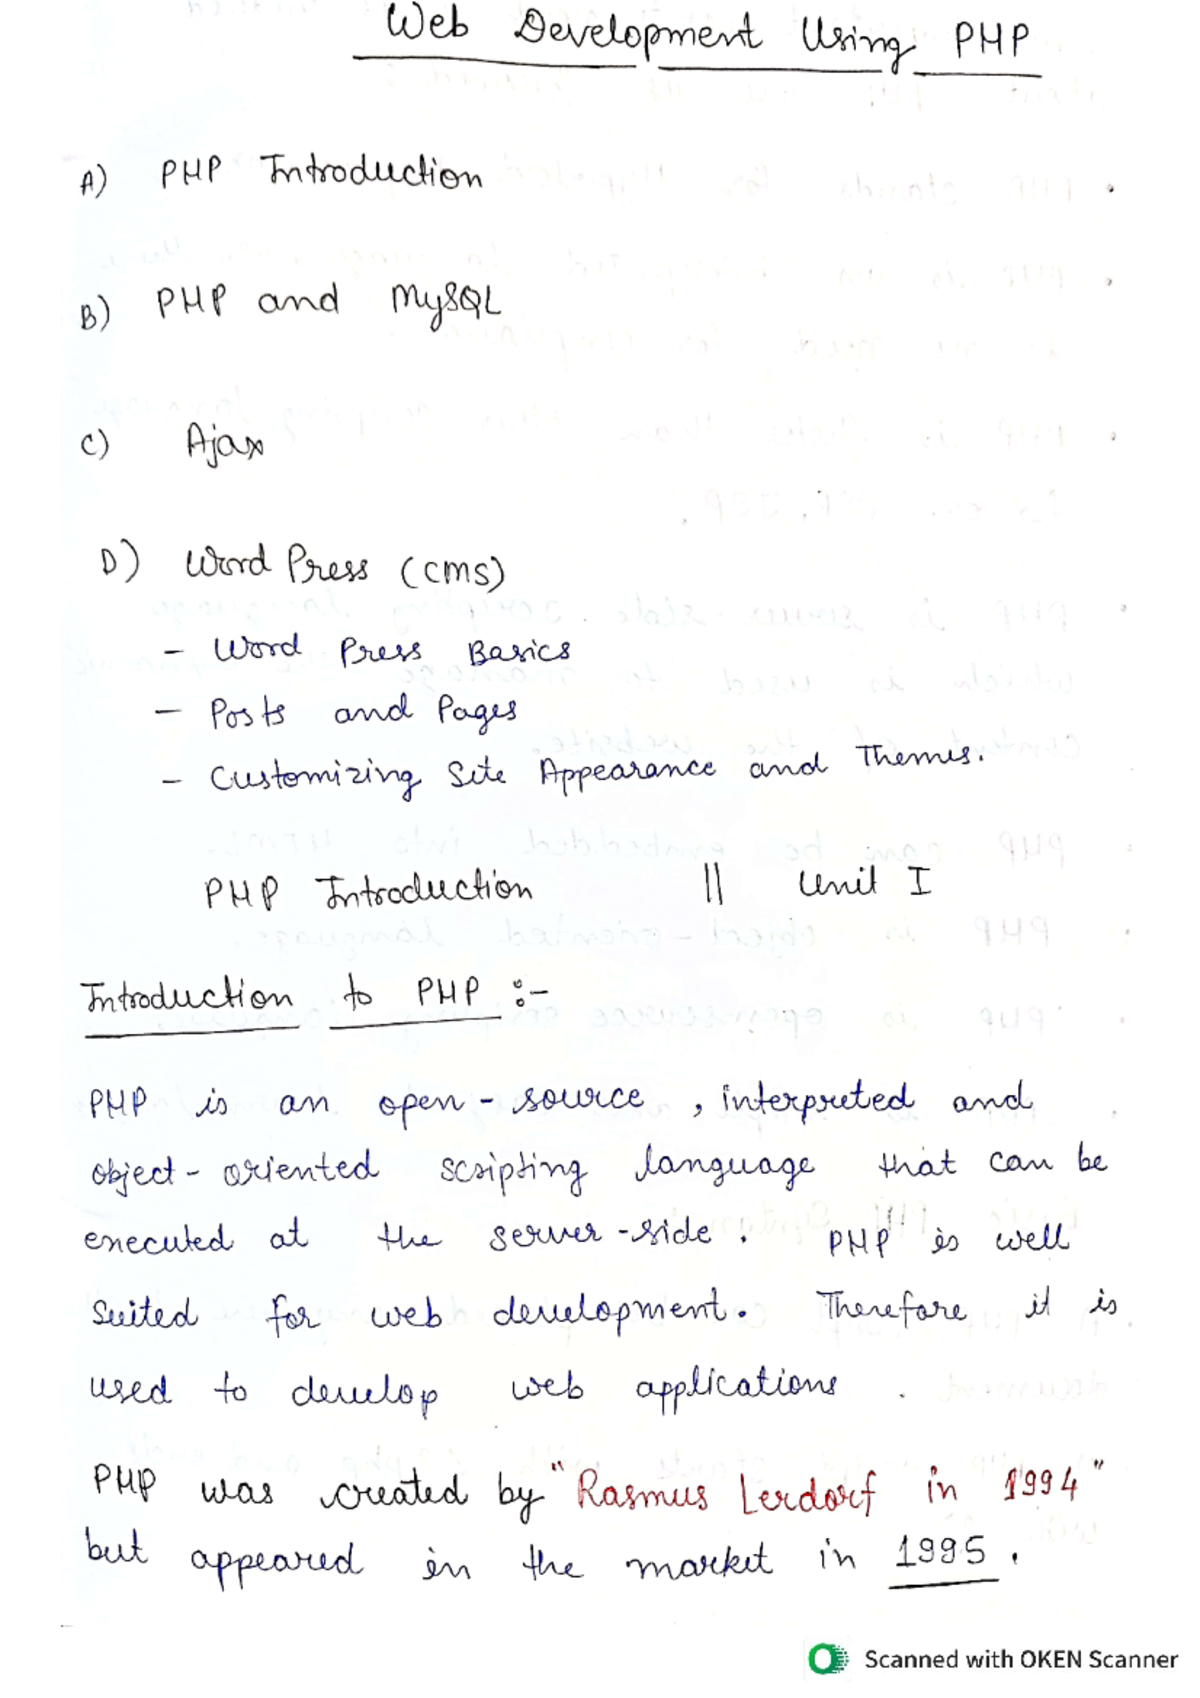 Web Development Using PHP
A) PHP Introduction
B) PHP and MySQL
C) Ajax
D) Word Press (CMS)
- Word Press Basics
- Posts and Pages
- Customizing Site Appearance and Themes.
PHP Introduction || Unit I
Introduction to PHP :-
PHP is an open-source, interpreted and
object-oriented scripting language that can be
executed at the server-side. PHP is well
suited for web development. Therefore it is
used to develop web applications.
PHP was created by "Rasmus Lerdorf in 1994"
but appeared in the market in 1995.
Scanned with OKEN Scanner